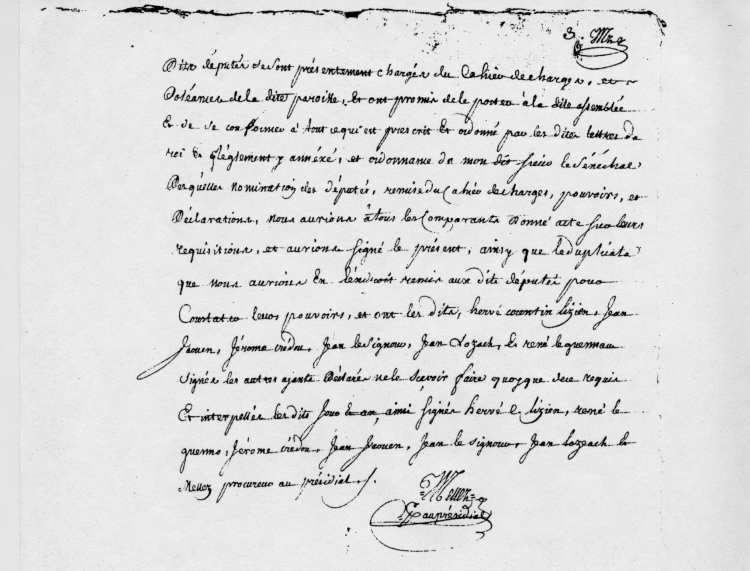 3. Mz
Dits députés se sont présentement chargés du Cahier de charges, et
Doléances de la dite paroisse, Et ont promis de le porter à la dite assemblée
Et de se conformer à tout ce qui est prescrit Et ordonné par les dites lettres du
roi et Réglement y annéxé, et ordonnance de mon dit sieur le Sénéchal
Desquelles nomination des députés, remise du Cahier de charges, pouvoirs, et
Déclarations, nous aurions à tous les Comparants Donné acte sur leurs
requisitions, et aurions signé le présent, ainsy que le duplicata
que nous aurions En l'endroit remis aux dits députés pour
Constater leurs pouvoirs, et ont les dits, hervé corentin lizien, Jean
Jaouen, Jérome crédou, Jean le Signour, Jean Lozach, Et rené le guennau
Signés les autres ayants Déclarés ne le scavoir faire quoyque de ce requis
Et interpellés les dits Jour et an, ainsi signés hervé C lizien, rené le
guenno, Jérome crédou, Jean Jaouen, Jean le Signour, Jean Lozeach le
Mellez procureur au présidial /.
Mellez
au présidial